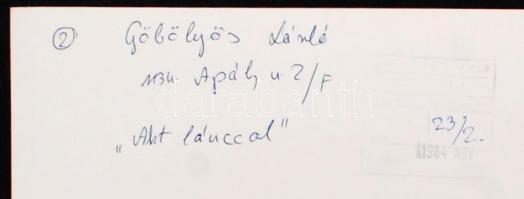 ② Göbölyös László
1134. Apály u. 2/F
darabanth
„Akt lánccal” 23/2.
1984 NOV